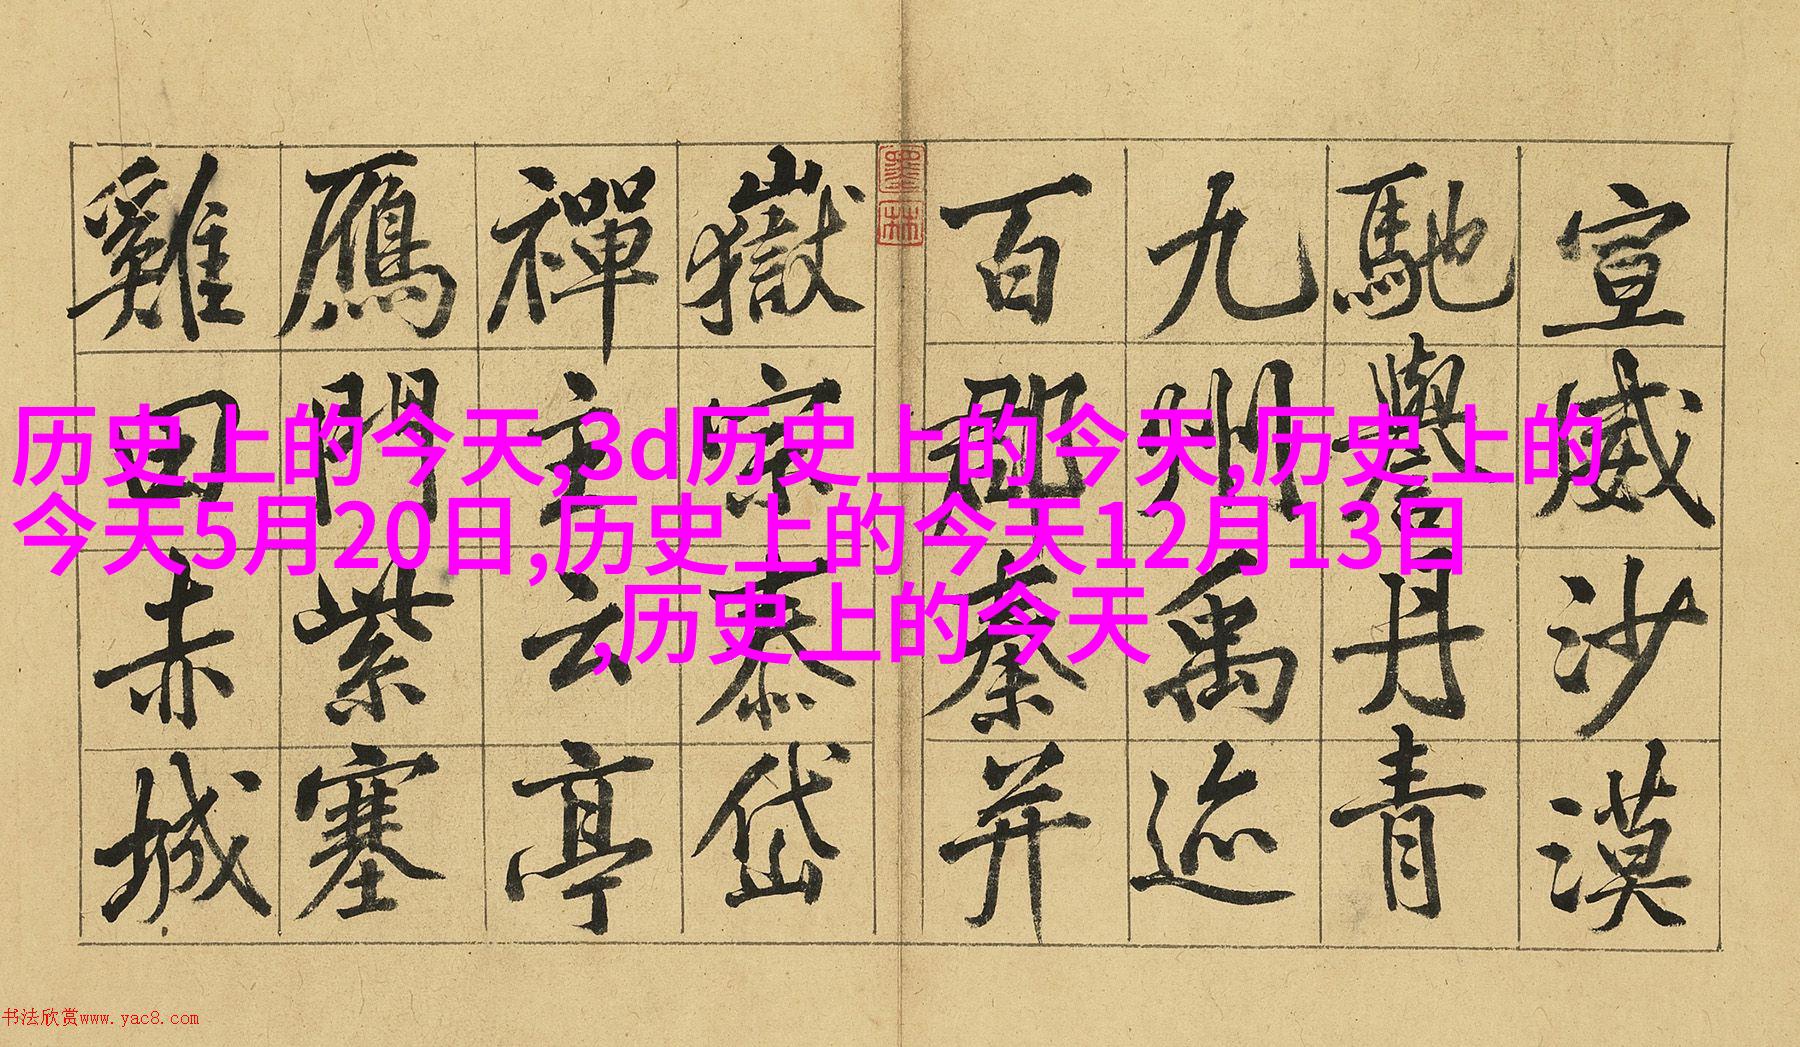 宣威沙漠
馳譽丹青
九州禹迹
百郡秦并
墨林
嶽宗泰岱
禪主云亭
鴈門紫塞
雞田赤城
历史上的今天,3d历史上的今天,历史上的
今天5月20日,历史上的今天12月13日
,历史上的今天
书法欣赏www.yac8.com